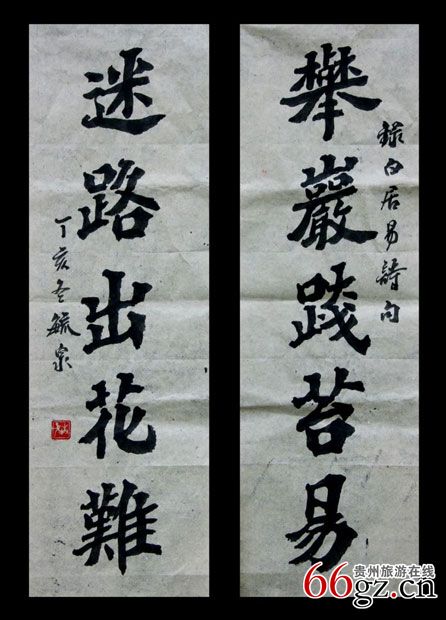 攀巖踐苔易
錄白居易詩句
迷路出花難
丁亥冬毓泉
贵州旅游在线
66gz.cn